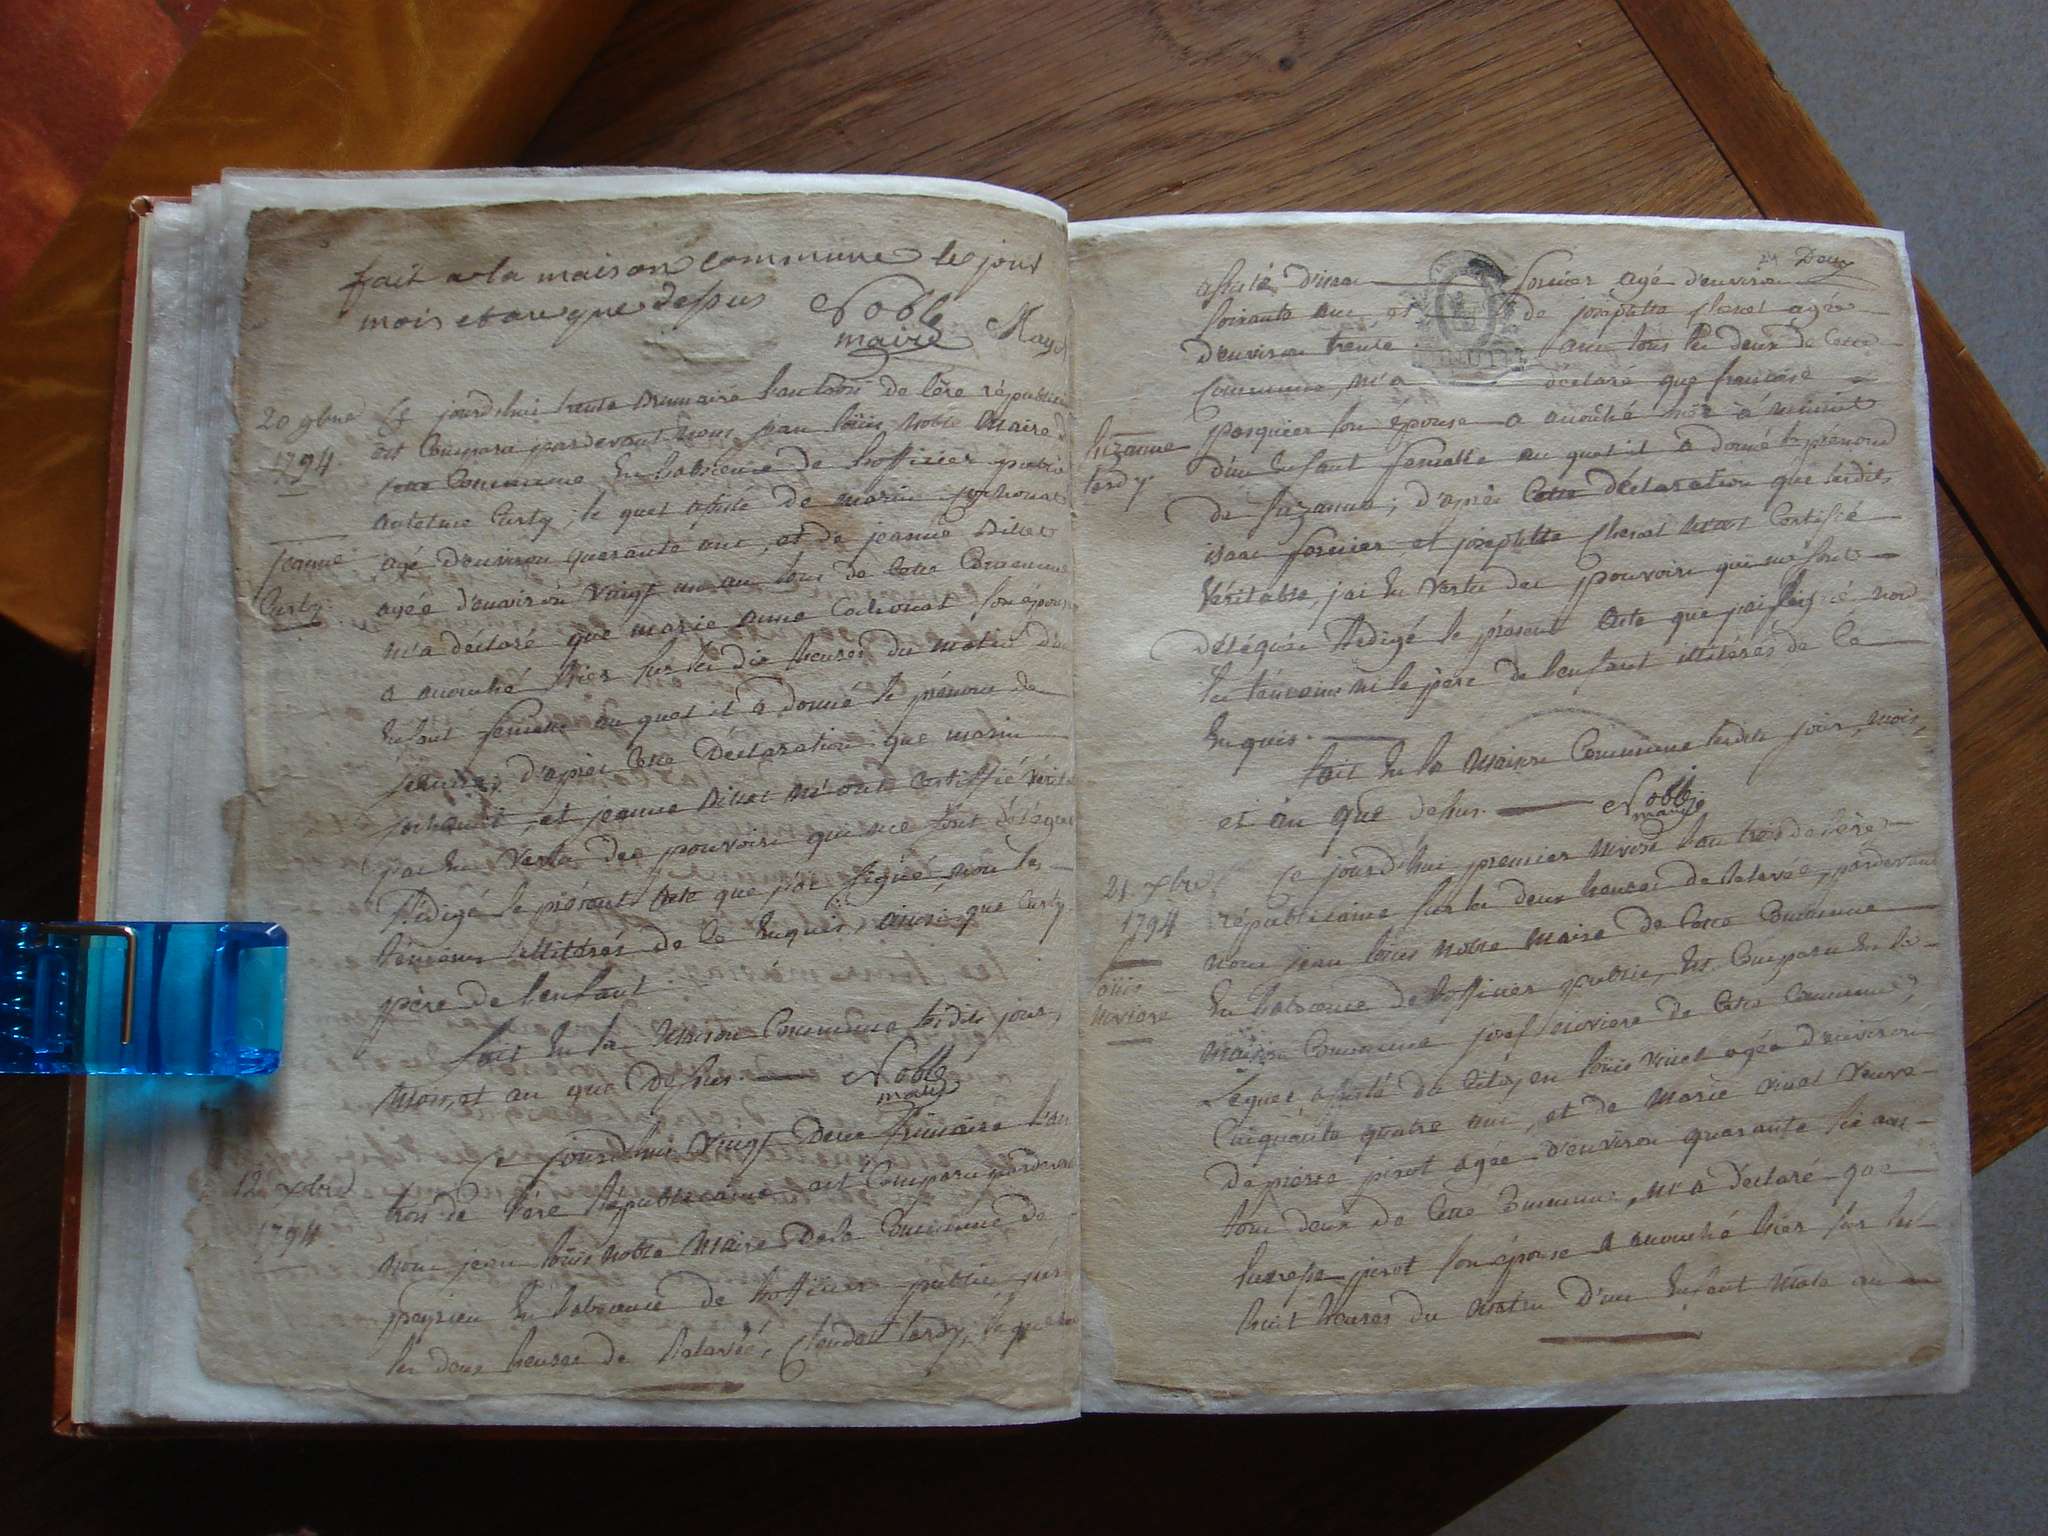 fait a la maison commune le jour
mois et an que dessus Noble
maire
20 9bre
1794
Ce jourd'hui trente Brumaire l'an trois de l'ère républi
est Comparu pardevant Nous jean loüis Noble Maire d
Commune En l'absence de l'officier public
antelme Curty, le quel assisté de marin
jeanne
Curty
agé d'environ quarante ans, et de jeanne
agée d'environ vingt un an tous de cette Commune
m'a déclaré que marie anne son épouse
a accouché hier sur les dix heures du matin d'un
Enfant femelle au quel il a donné le prénom de
jeanne; d'après cette Déclaration que marin
et jeanne m'ont Certiffié vérita
j'ai En Vertu des pouvoirs qui me sont délégué
Rédigé le présent Acte que j'ai signé, non les
témoins illitérés de ce Enquis, ainsi que Curty
père de l'enfant.
fait En la Maison Commune lesdits jour,
Mois, et an que Dessus. Noble
maire
12 xbre
1794
Ce jourd'hui Vingt Deux frimaire l'an
trois de l'ère Républicaine est Comparu pardevant
Nous jean loüis Noble Maire de la Commune de
peyrieu En l'absence de l'officier public sur
les deux heures de relevée, Claude tardy, lequel
assisté d'isaac fornier agé d'environ
soixante ans et de josephtte agée
d'environ trente ans tous les deux de Cette
Commune, m'a déclaré que
suzanne
tardy
pasquier son épouse a accouché à minuit
d'un Enfant femelle au quel il a donné le prénom
de suzanne; d'après Cette déclaration que lesdits
isaac fornier et josephtte m'ont Certifié
Véritable, j'ai En Vertu des pouvoirs qui me sont
délégués Rédigé le présent Acte que j'ai signé non
les témoins ni le père de l'enfant illitérés de Ce
Enquis.
fait En la Maison Commune lesdits jour, mois,
et an que dessus. Noble
maire
21 xbre
1794
Ce jourd'hui premier Nivose l'an trois de l'ère
républicaine sur les deux heures de relevée, pardevant
nous jean loüis Noble Maire de Cette Commune
loüis
riviere
En l'absence de l'officier public, Est Comparu En la
Maison Commune josef riviere de Cette Commune,
Lequel assisté du Citoyen loüis vinet agé d'environ
Cinquante quatre ans, et de Marie vinet Veuve
de pierre pirot agée d'environ quarante six ans
tous deux de Cette Commune, m'a déclaré que
pirot son épouse a accouché hier sur les
huit heures du Matin d'un Enfant Mâle au